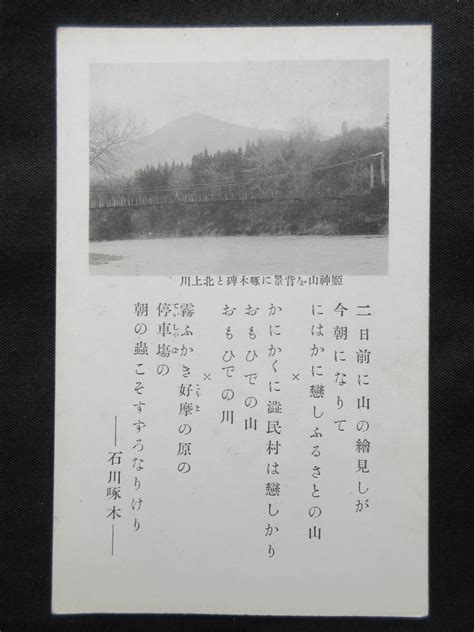 姫神山を背景に啄木碑と北上川
二日前に山の繪見しが
今朝になりて
にはかに戀しふるさとの山
×
かにかくに澁民村は戀しかり
おもひでの山
おもひでの川
×
霧ふかき好摩の原の
こうま
停車塲の
ていしやば
朝の蟲こそすずろなりけり
――石川啄木――